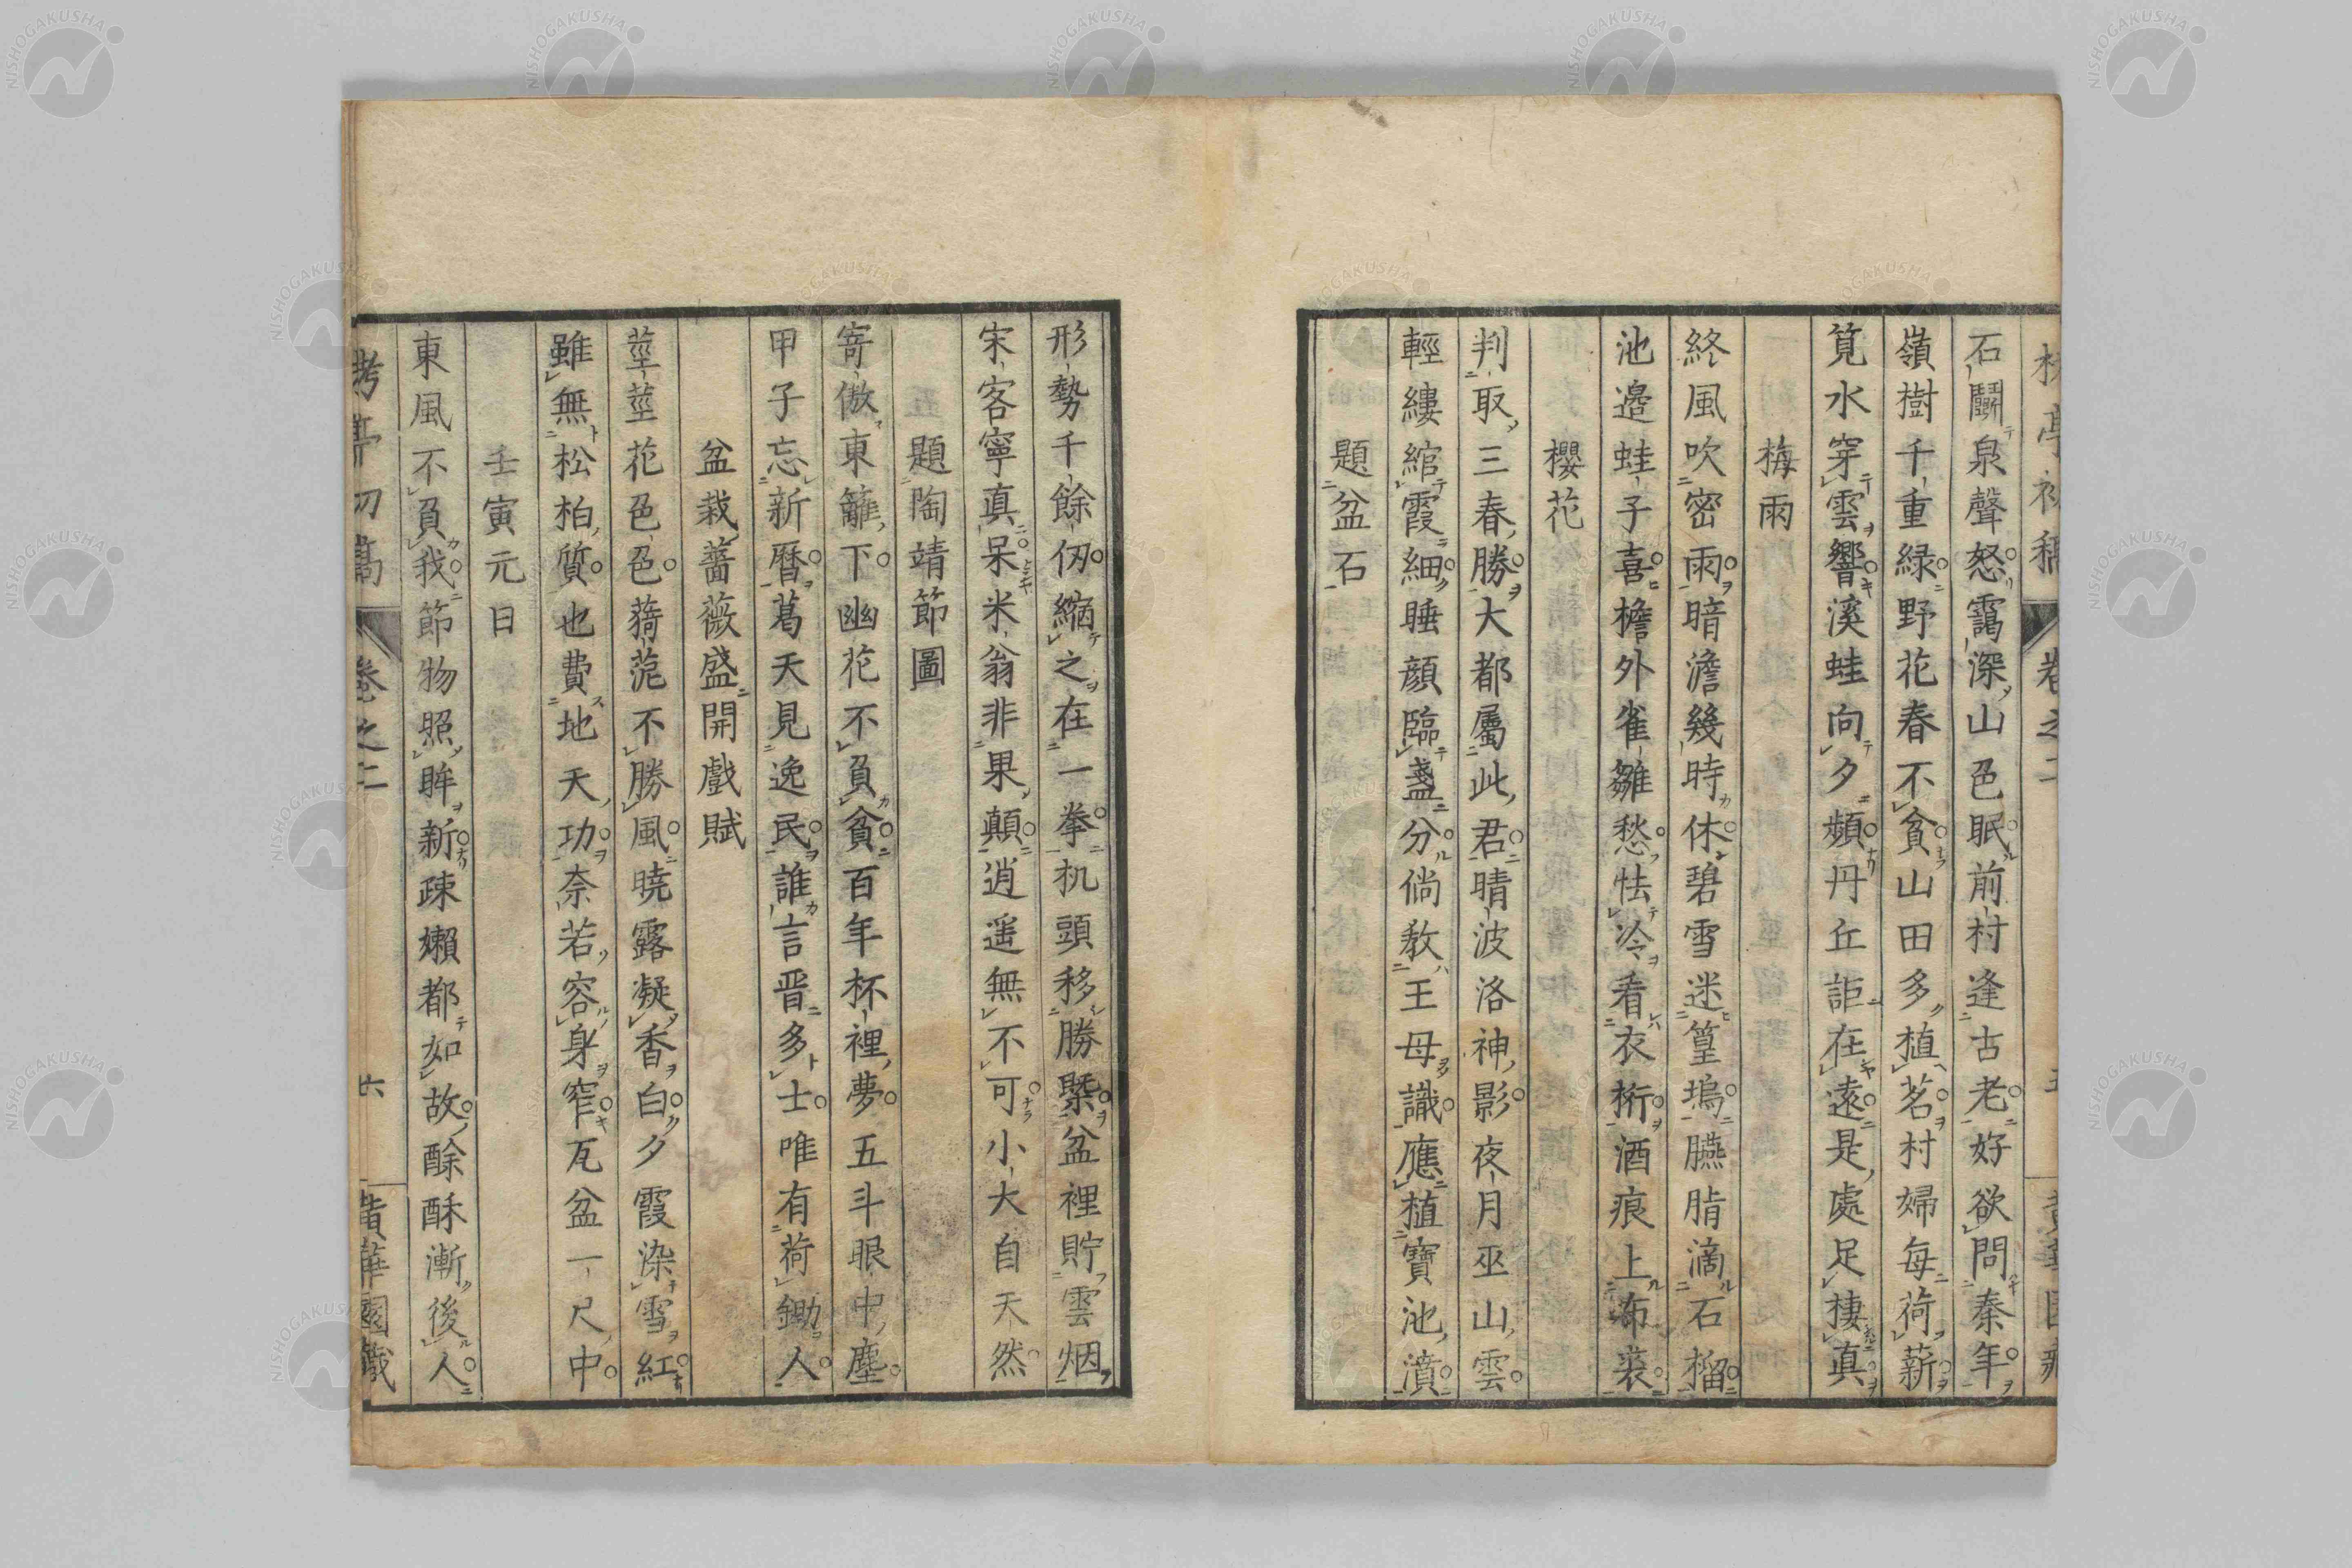 栲亭初稿 卷之二 五 黄華園藏
石鬭泉聲怒靄深山色眠前村逢古老好欲問秦年
嶺樹千重緑野花春不貧山田多植茗村婦每荷薪
筧水穿雲響溪蛙向夕頻丹丘詎在遠是處足棲真
梅雨
終風吹密雨暗澹幾時休碧雪迷篁塢臙脂滴石榴
池邉蛙子喜檐外雀雛愁怯冷看衣桁酒痕上布裘
櫻花
判取三春勝大都屬此君晴波洛神影夜月巫山雲
輕縷綰霞細睡顔臨盞分倘教王母識應植寶池濆
題盆石
形勢千餘仭縮之在一拳机頭移勝槩盆裡貯雲烟
宋客寧真呆米翁非果顛逍遥無不可小大自天然
題陶靖節圖
寄傲東籬下幽花不負貧百年杯裡夢五斗眼中塵
甲子忘新暦葛天見逸民誰言晋多士唯有荷鋤人
盆栽薔薇盛開戲賦
莖莖花色色蕕萢不勝風暁露凝香白夕霞染雪紅
雖無松柏質也費地天功奈若容身窄瓦盆一尺中
壬寅元日
東風不負我節物照眸新疎嬾都如故酴酥漸後人
栲亭初稿 卷之二 六 黄華園藏
NISHOGAKUSHA